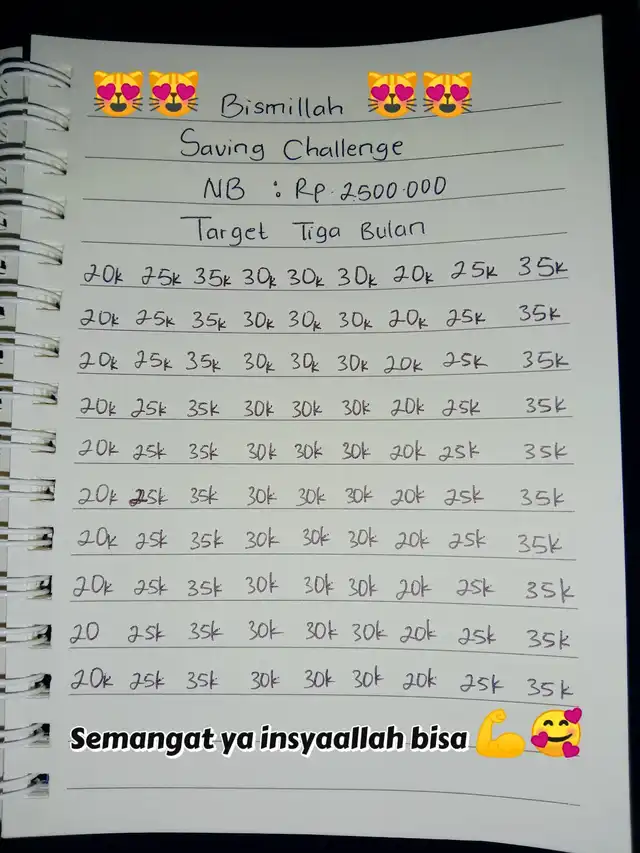 Bismillah
Saving Challenge
NB : Rp. 2500.000
Target Tiga Bulan
20k 25k 35k 30k 30k 30k 20k 25k 35k
20k 25k 35k 30k 30k 30k 20k 25k 35k
20k 25k 35k 30k 30k 30k 20k 25k 35k
20k 25k 35k 30k 30k 30k 20k 25k 35k
20k 25k 35k 30k 30k 30k 20k 25k 35k
20k 25k 35k 30k 30k 30k 20k 25k 35k
20k 25k 35k 30k 30k 30k 20k 25k 35k
20k 25k 35k 30k 30k 30k 20k 25k 35k
20 25k 35k 30k 30k 30k 20k 25k 35k
20k 25k 35k 30k 30k 30k 20k 25k 35k
Semangat ya insyaallah bisa